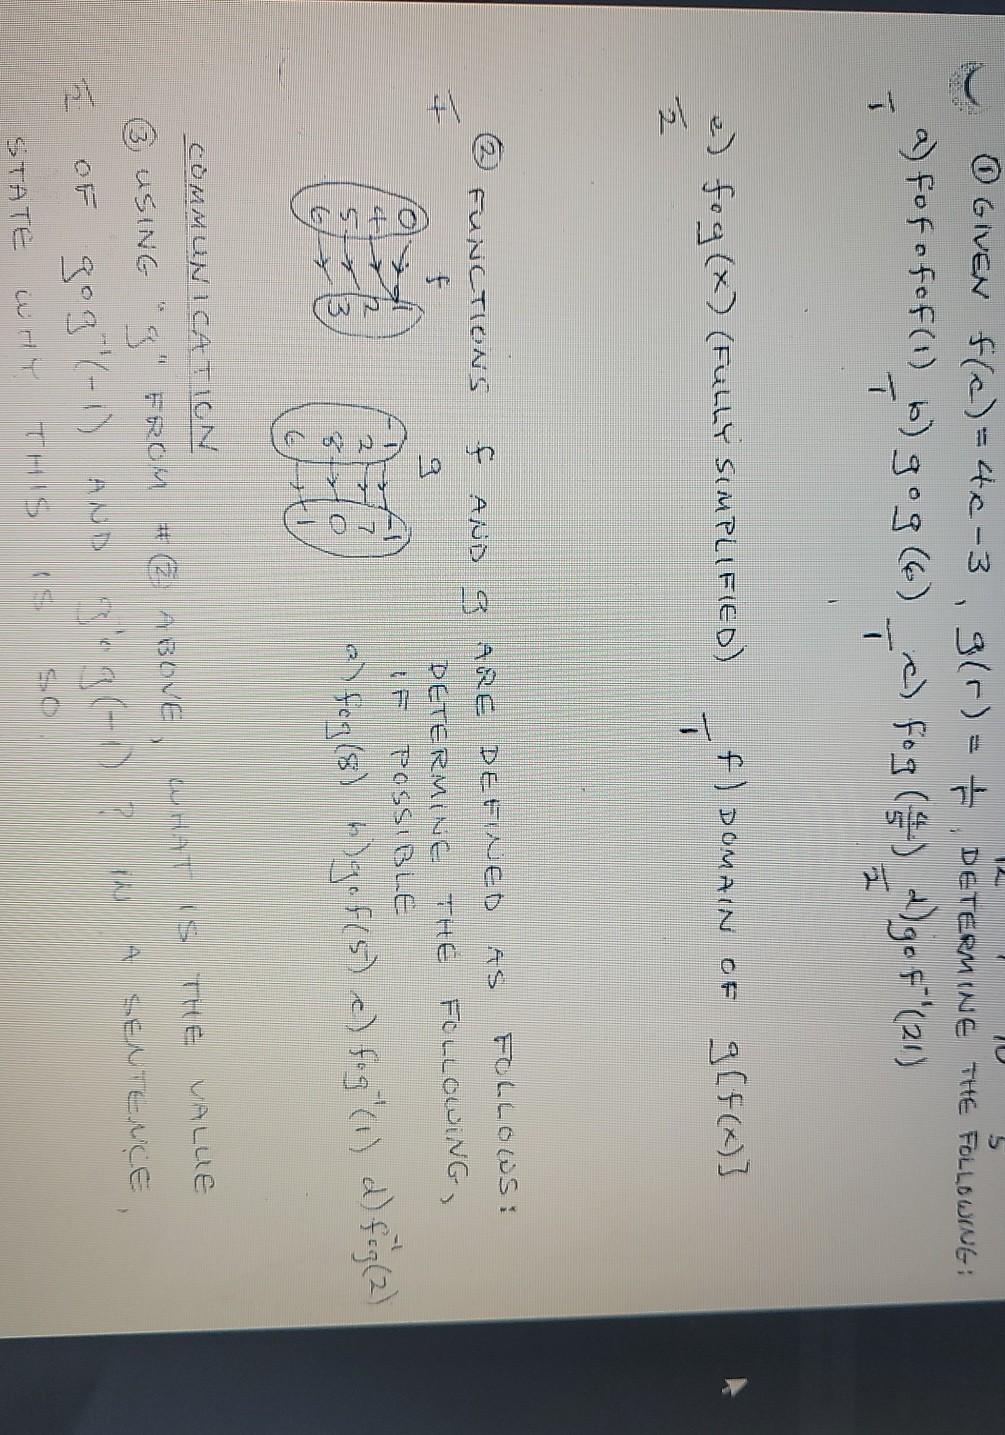 12 10 5
① GIVEN f(x) = 4x - 3, g(r) = 1/r, DETERMINE THE FOLLOWING:
1 a) fofofof(1) 1 b) gog(6) 1 c) fog(4/5) 2 d) gof⁻¹(21)
2 e) fog(x) (FULLY SIMPLIFIED) 1 f) DOMAIN OF g[f(x)]
② FUNCTIONS f AND g ARE DEFINED AS FOLLOWS:
4 f g DETERMINE THE FOLLOWING,
IF POSSIBLE
0 1 -1 -1
4 2 2 7
5 3 8 0
6 6 1
a) fog(8) b) gof(5) c) fog⁻¹(1) d) f⁻¹og(2)
COMMUNICATION
③ USING "g" FROM #② ABOVE, WHAT IS THE VALUE
2 OF gog⁻¹(-1) AND g⁻¹og(-1)? IN A SENTENCE,
STATE WHY THIS IS SO.